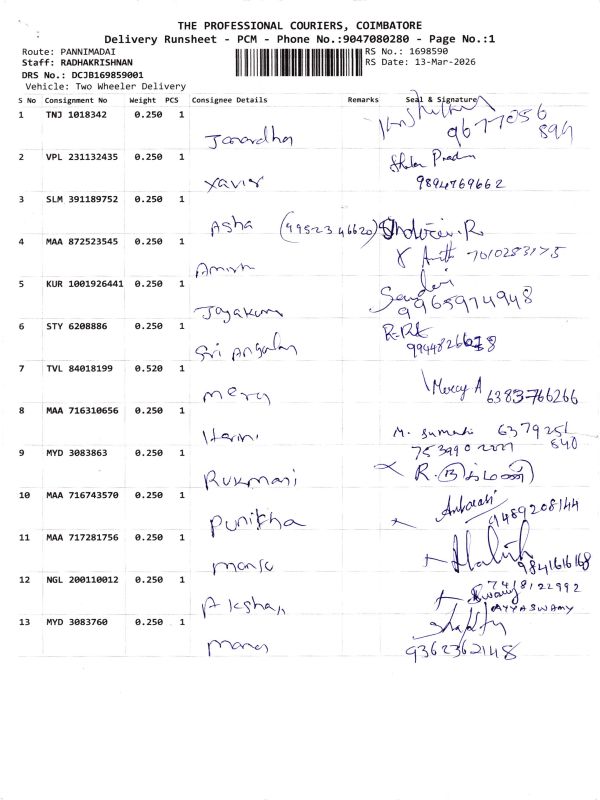 THE PROFESSIONAL COURIERS, COIMBATORE
Delivery Runsheet - PCM - Phone No.:9047080280 - Page No.:1
Route: PANNIMADAI RS No.: 1698590
Staff: RADHAKRISHNAN RS Date: 13-Mar-2026
DRS No.: DCJB169859001
Vehicle: Two Wheeler Delivery
S No Consignment No Weight PCS Consignee Details Remarks Seal & Signature
1 TNJ 1018342 0.250 1
9677056
894
Janardha
2 VPL 231132435 0.250 1
9894769662
Xavier
3 SLM 391189752 0.250 1
Asha (9952346620)
4 MAA 872523545 0.250 1
7010283175
5 KUR 1001926441 0.250 1
9965974948
Jayakum
6 STY 6208886 0.250 1
Sri Angalan
7 TVL 84018199 0.520 1
Mercy A 6383766266
Mercy
8 MAA 716310656 0.250 1
M. Sumathi 6379251
540
9 MYD 3083863 0.250 1
Rukmani
10 MAA 716743570 0.250 1
9489208144
Punitha
11 MAA 717281756 0.250 1
9841616168
12 NGL 200110012 0.250 1
7418122992
AYYASWAMY
13 MYD 3083760 0.250 1
9362362148